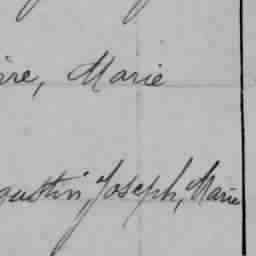 ire, Marie
gustin Joseph, Marie